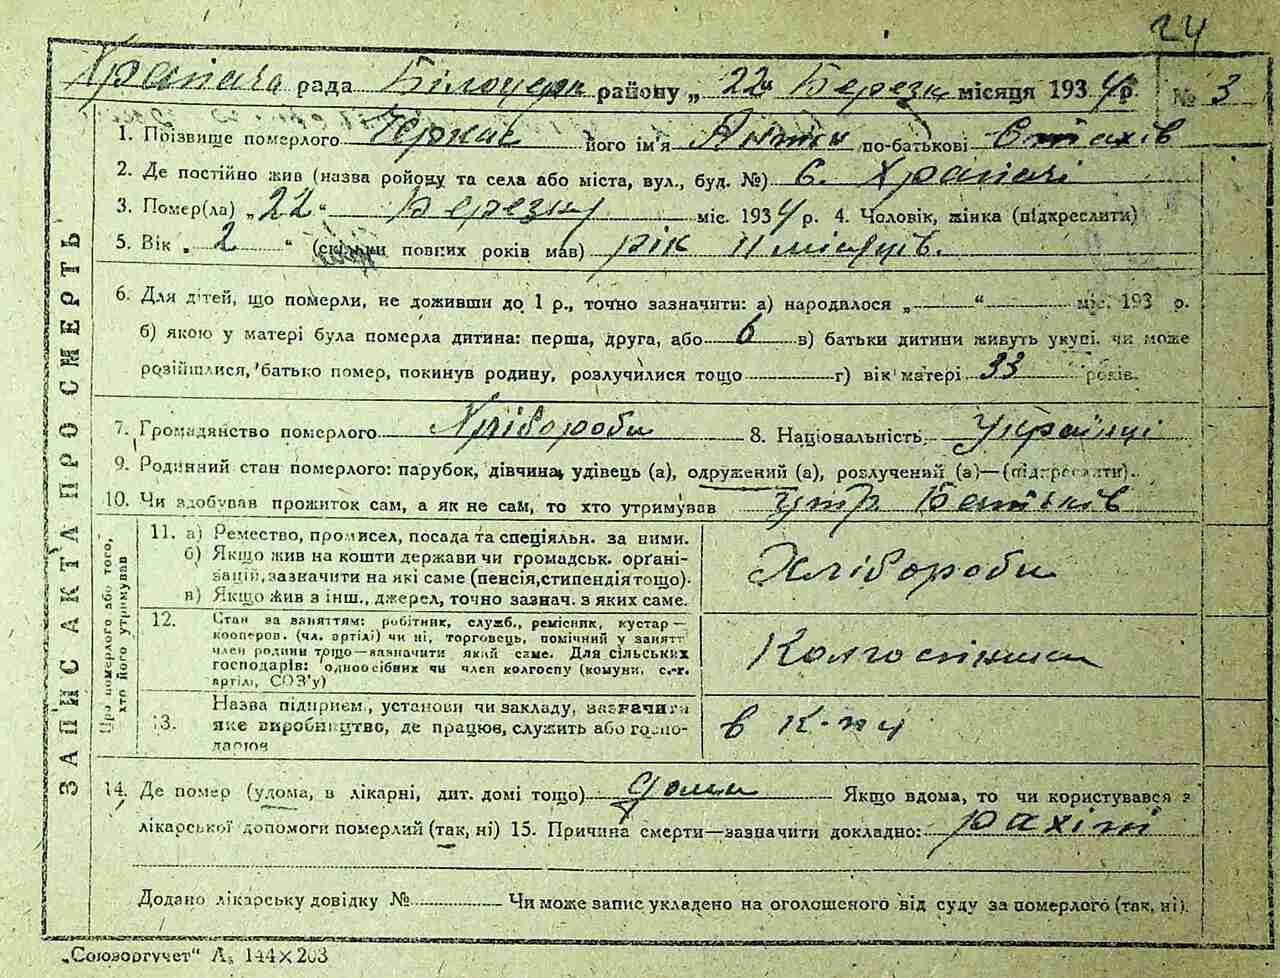 24
Храпача рада Білоцерк району „ 22 " Березня місяця 1934 р. № 3
ЗАПИС АКТА ПРО СМЕРТЬ
1. Прізвище померлого його ім'я Антон по-батькові Стахів
2. Де постійно жив (назва ройону та села або міста, вул., буд. №) С. Храпачі
3. Помер(ла) „ 22 " Березня міс. 1934 р. 4. Чоловік, жінка (підкреслити)
5. Вік „ 2 " (скільки повних років мав) рік 11 місяців.
6. Для дітей, що померли, не доживши до 1 р., точно зазначити: а) народалося „ " міс. 193 р.
б) якою у матері була померла дитина: перша, друга, або 6 в) батьки дитини живуть укупі. чи може
розійшлися, батько помер, покинув родину, розлучилися тощо г) вік матері 33 років.
7. Громадянство померлого Хлібороби 8. Національність Українці
9. Родинний стан померлого: парубок, дівчина, удівець (а), одружений (а), розлучений (а)—(підкреслити).
10. Чи здобував прожиток сам, а як не сам, то хто утримував утр. Батьків
Про померлого або того, хто його утримував
11. а) Ремество, промисел, посада та спеціяльн. за ними.
б) Якщо жив на кошти держави чи громадськ. орґані-
зацій, зазначити на які саме (пенсія, стипендія тощо).
в) Якщо жив з інш., джерел, точно зазнач. з яких саме.
Хлібороби
12. Стан за заняттям: робітник, служб., ремісник, кустар—
кооперов. (чл. артілі) чи ні, торговець, помічний у занятт
член родини тощо—зазначити який саме. Для сільських
господарів: одноосібних чи член колгоспу (комуни, с.-г.
артілі, СОЗ'у)
Колгоспники
13. Назва підприєм., установи чи закладу, зазначити
яке виробництво, де працює, служить або госпо-
дарює
в к-пі
14. Де помер (удома, в лікарні, дит. домі тощо) дома Якщо вдома, то чи користувався з
лікарської допомоги померлий (так, ні) 15. Причина смерти—зазначити докладно: рахіт
Додано лікарську довідку № Чи може запис укладено на оголошеного від суду за померлого (так, ні).
„Союзоргучет" А₅ 144×203